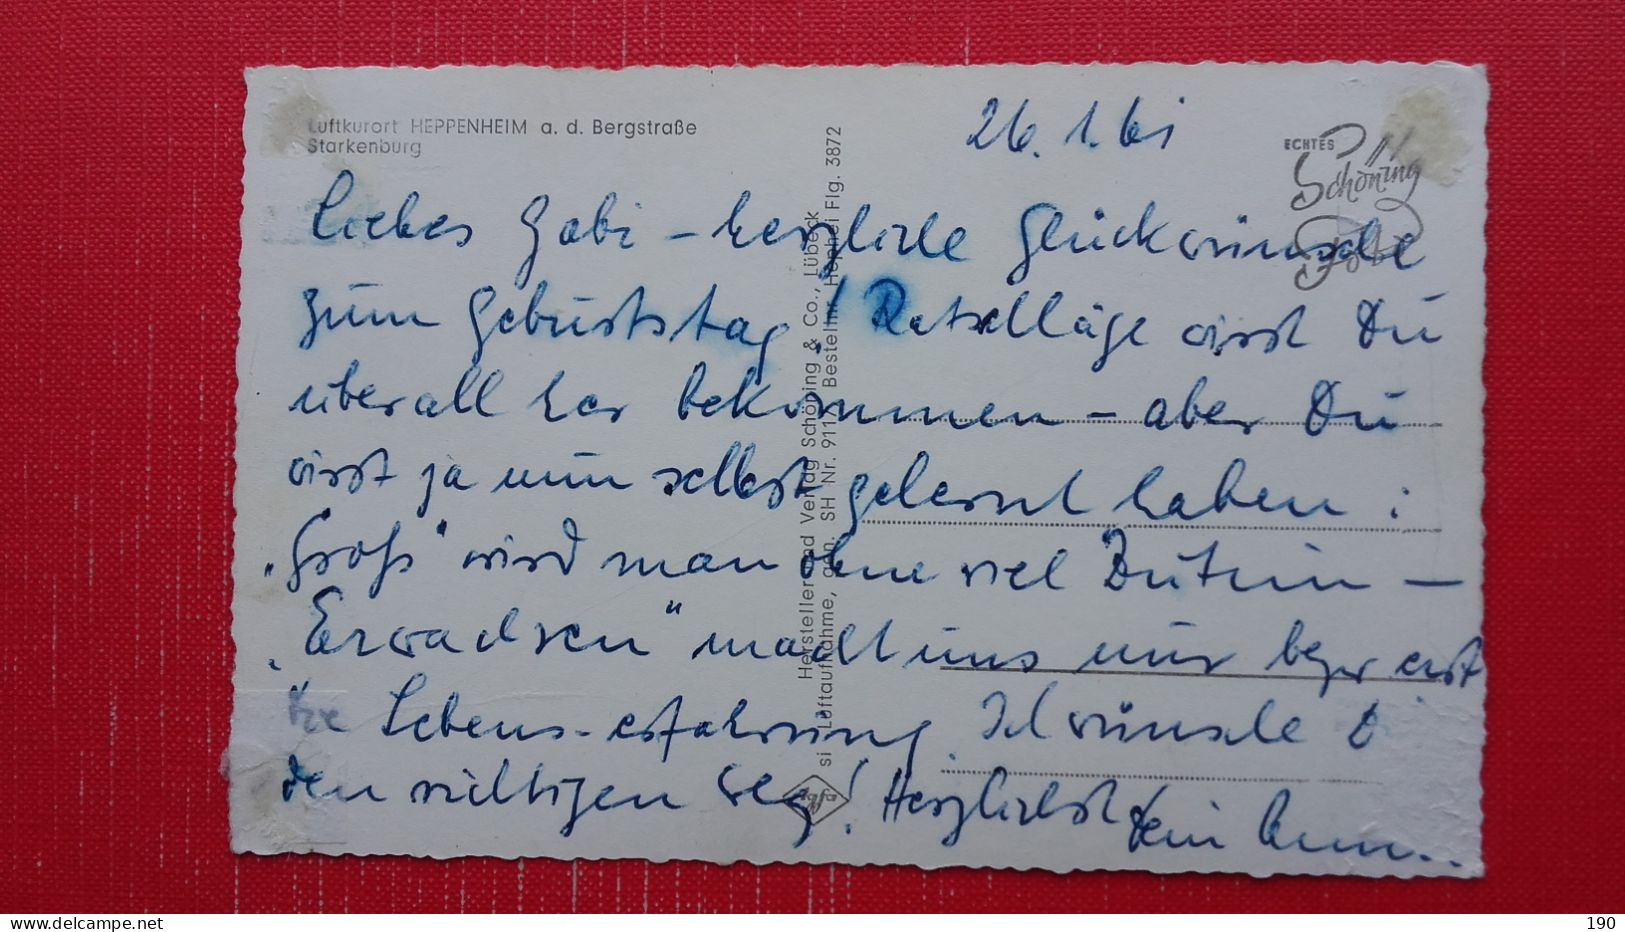 Luftkurort HEPPENHEIM a. d. Bergstraße
Starkenburg
26. 1. 61
ECHTES
Schöning
Foto
Liebes Gabi – herzliche Glückwünsche
zum Geburtstag! Ratschläge wirst Du
überall her bekommen – aber Du
wirst ja nun selbst gelernt haben:
„Groß" wird man ohne viel Zutun –
„Erwachsen" macht uns nur erst
Lebens-erfahrung. Ich wünsche D
den richtigen Weg! Herzlichst Dein
Hersteller und Verlag Schöning & Co., Lübeck
si Luftaufnahme, gen. SH Nr. 911/ Bestellnr. Hephei Flg. 3872
Agfa
delcampe.net
190